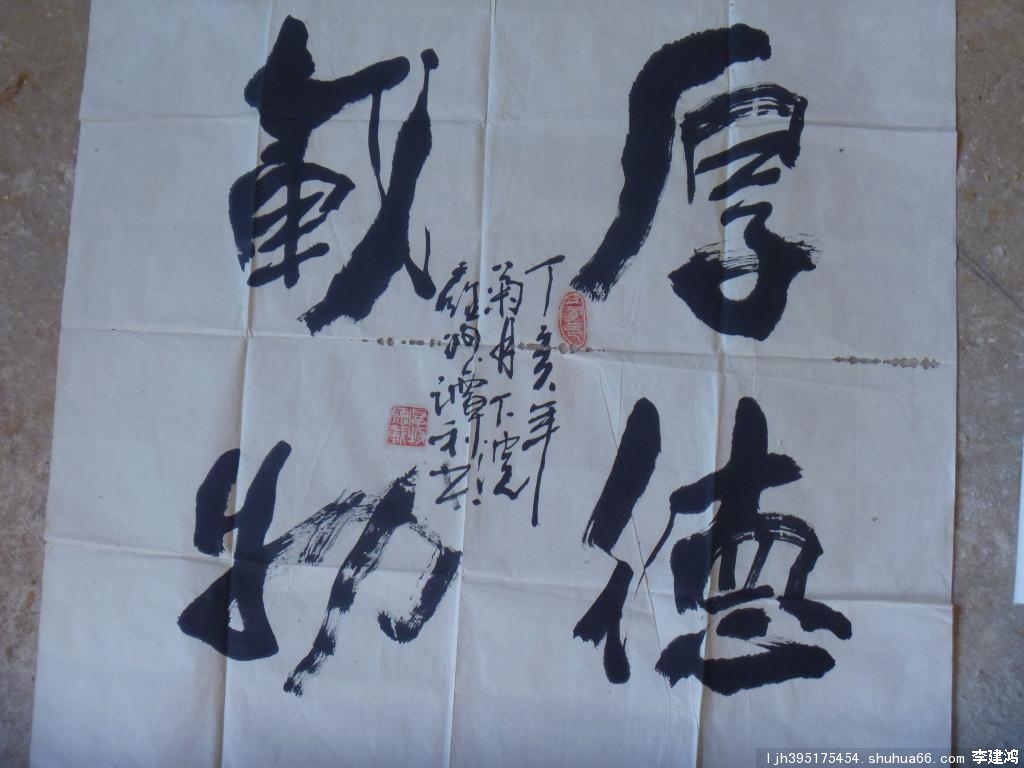 厚德
载物
丁亥年
菊月下浣
谭
ljh395175454.shuhua66.com 李建鸿